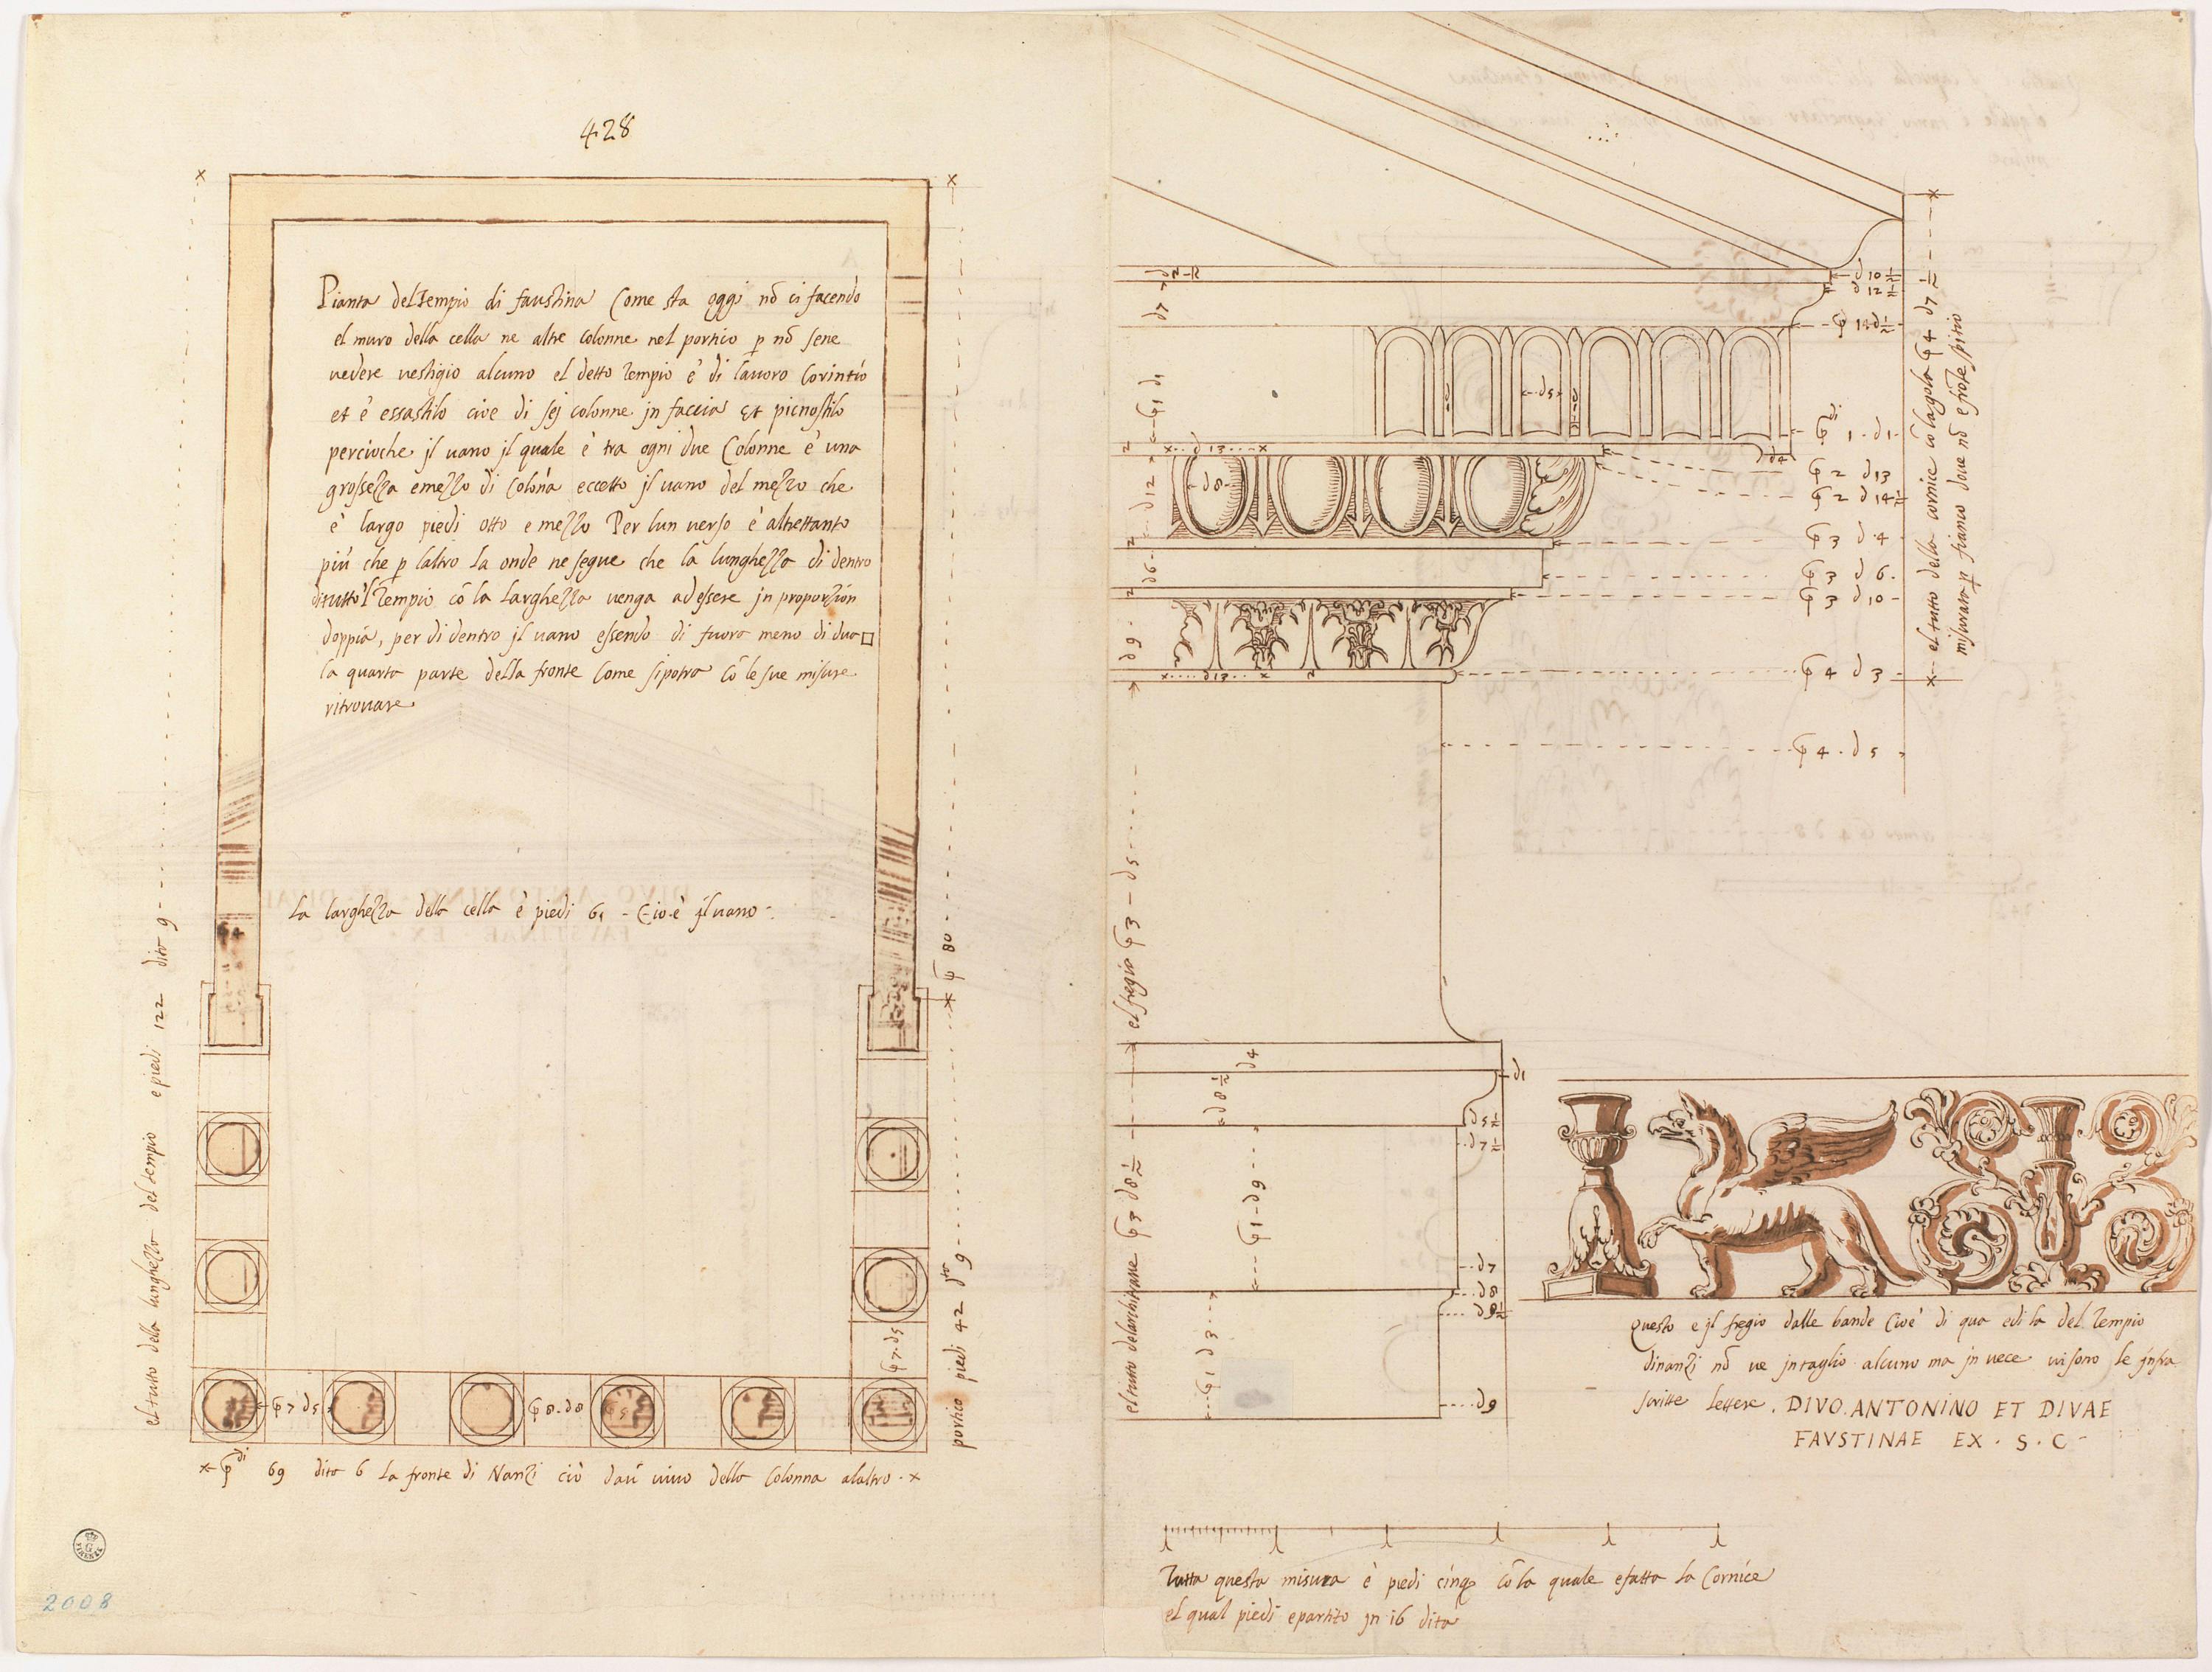 428
Pianta del Tempio di faustina Come sta oggi nō ci facendo
el muro della cella ne altre colonne nel portico p nō sene
vedere vestigio alcuno el detto Tempio è di lavoro Corintio
et è essastilo cioe di sej colonne jn faccia et picnostilo
percioche jl vano jl quale è tra ogni due Colonne è una
grossezza emezzo di Colōna eccetto jl vano del mezzo che
è largo piedi otto e mezzo Per lun verso è altrettanto
più che p laltro La onde ne segue che la lunghezza di dentro
di tutto l Tempio cō la Larghezza venga adessere jn proporzion
doppia, per di dentro jl vano essendo di fuora meno di dua □
la quarta parte della fronte Come si potra Cō le sue misure
ritrovare
La larghezza della cella è piedi 61 - Cioè jl vano -
el tutto della lunghezza del tempio e piedi 122 dita 9
80
portico piedi 42 dta 9
7 d5
7 d5
8 d8
69 dita 6 La fronte di Nanzi ciò dal vivo della Colonna alaltro
2008
d10½
d12½
d7
1 d1
d5
1 d1
d 13
d4
2 d13
2 d14½
d12
d8
3 d 4
d6
3 d 6
3 d 10
d9
d13
4 d 3
4 d 5
el tutto della cornice cō la gola 4 d7½
misurato p fianco dove nō e frōtespitio
el fregio 3 d5
d4
d1
d8½
d5½
d7½
1 d9
el tutto delarchitrave 3 d8½
d7
d8
d8½
1 d3
d9
Questo e jl fregio dalle bande Cioè di qua edi la del Tempio
dinanzi nō ve jntaglio alcuno ma jn vece vi sono le jnfra
scritte lettere . DIVO ANTONINO ET DIVAE
FAVSTINAE EX · S · C
Tutta questa misura è piedi cinq cō la quale efatta la Cornice
el qual piedi epartito jn 16 dita